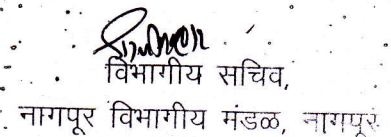 विभागीय सचिव,
नागपूर विभागीय मंडळ, नागपूर